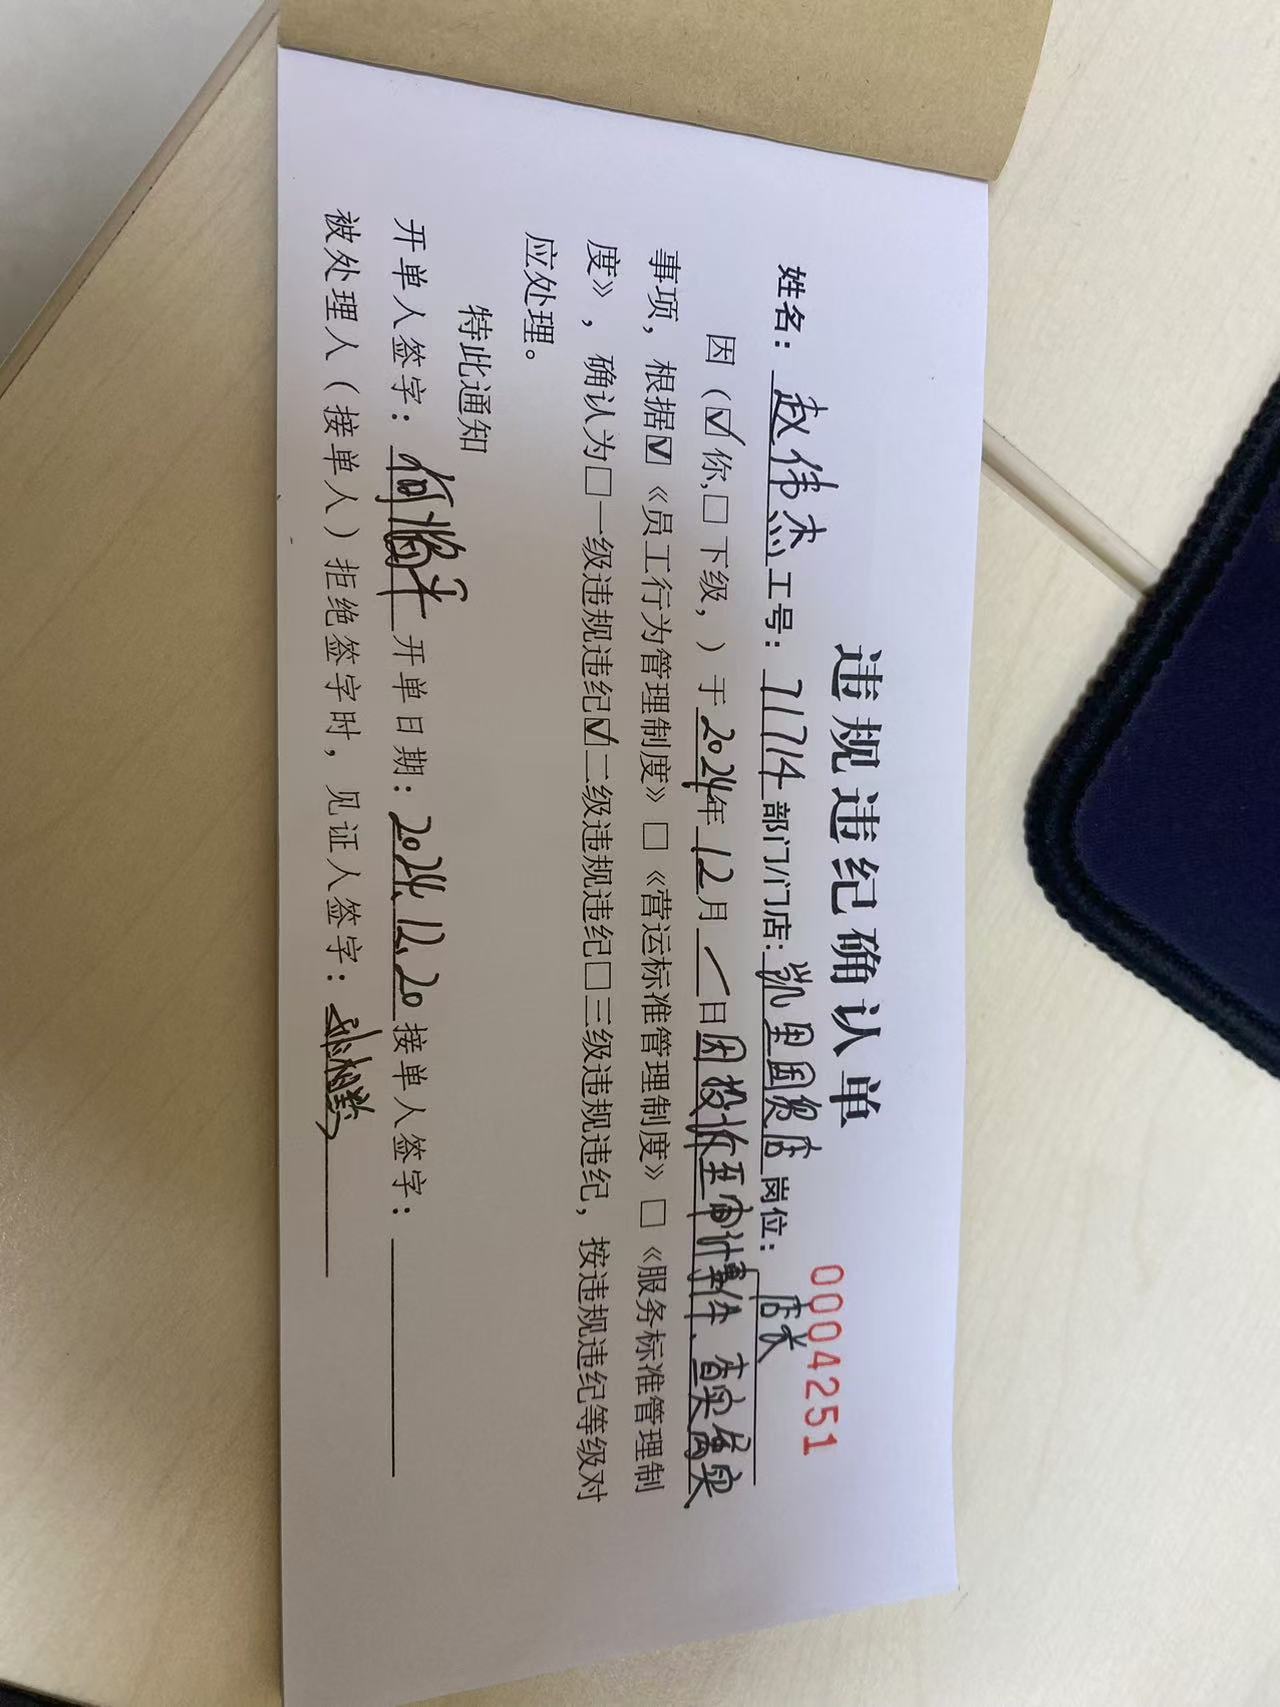 违规违纪确认单
0004251
姓名：赵伟杰 工号：71714 部门/门店：凯里国贸店 岗位：店长
因（☑你,□下级，）于2024年12月一日因投诉至审计事件，查实属实
事项，根据☑《员工行为管理制度》□《营运标准管理制度》□《服务标准管理制
度》，确认为□一级违规违纪☑二级违规违纪□三级违规违纪，按违规违纪等级对
应处理。
特此通知
开单人签字： 开单日期：2024.12.20 接单人签字：
被处理人（接单人）拒绝签字时，见证人签字：